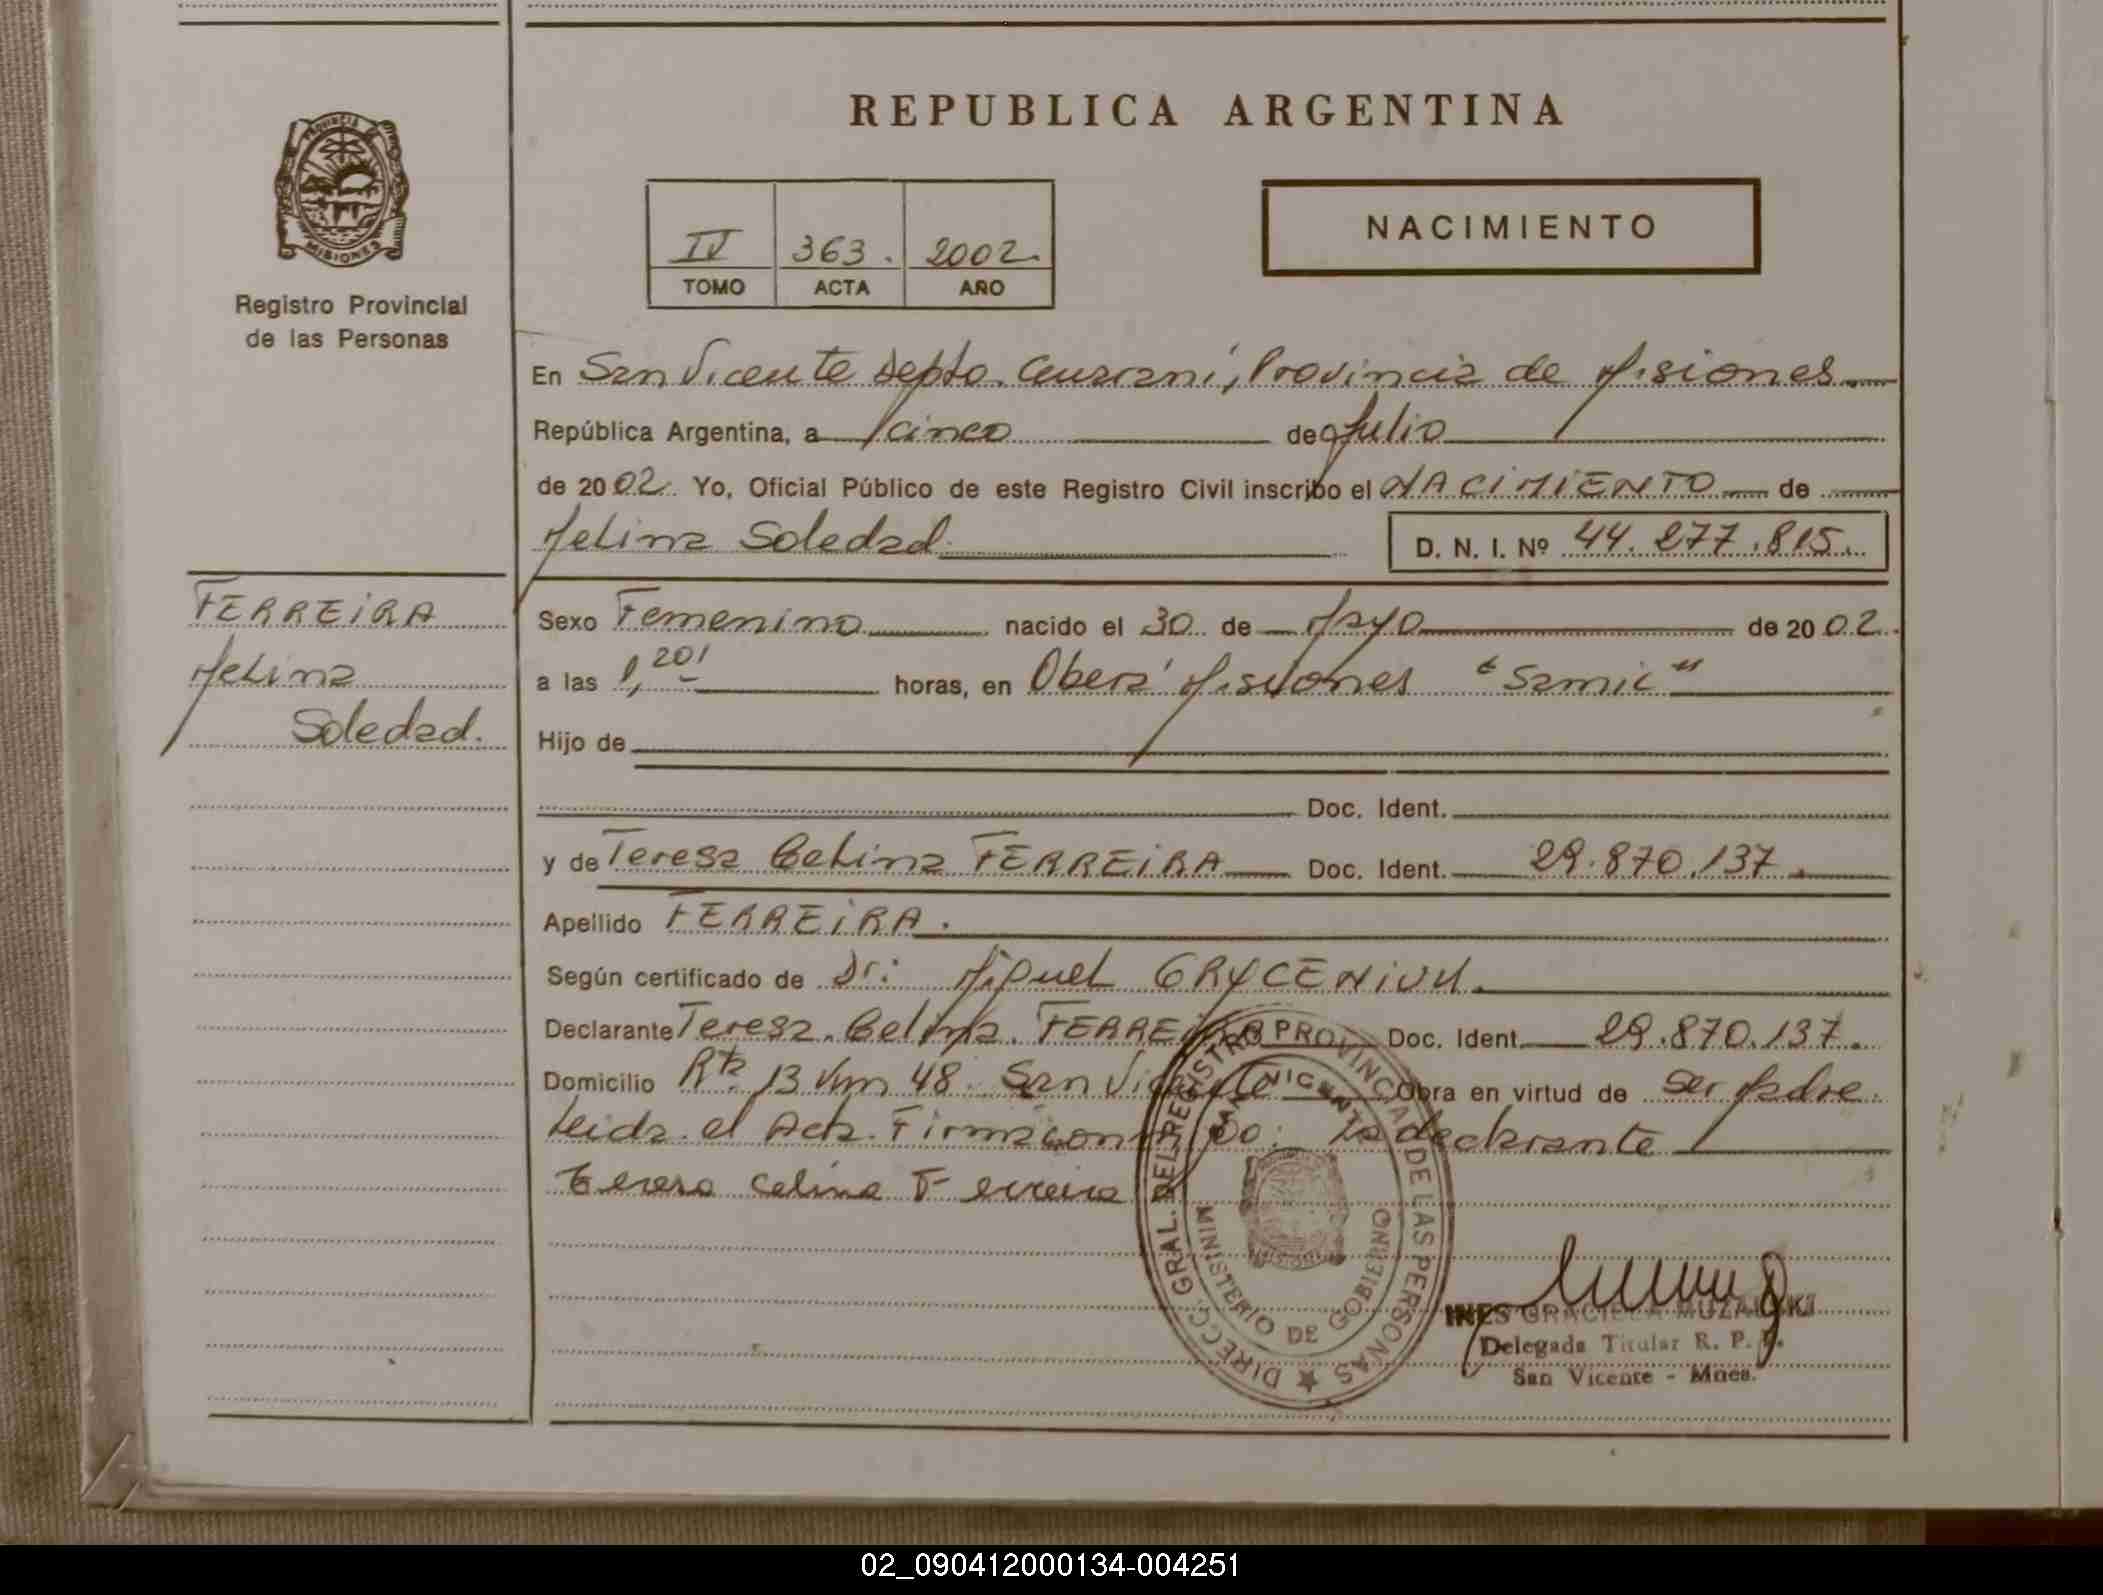 REPUBLICA ARGENTINA
PROVINCIA DE
MISIONES
Registro Provincial
de las Personas
IV 363. 2002.
TOMO ACTA AÑO
NACIMIENTO
En San Vicente Depto. Guaraní, Provincia de Misiones
República Argentina, a cinco de Julio
de 2002. Yo, Oficial Público de este Registro Civil inscribo el NACIMIENTO de
Melina Soledad D. N. I. Nº 44.277.815.
FERREIRA
Melina
Soledad.
Sexo Femenino nacido el 30 de Mayo de 2002.
a las 1,20' horas, en Oberá Misiones "Samic"
Hijo de
Doc. Ident.
y de Teresa Celina FERREIRA Doc. Ident. 29.870.137.
Apellido FERREIRA.
Según certificado de Dr: Miguel
Declarante Teresa Celina FERREIRA Doc. Ident. 29.870.137.
Domicilio Rta. 13 Km 48. San Vicente Obra en virtud de ser Madre.
Leida el Acta Firma con la declarante
Teresa Celina Ferreira
DIRECC. GRAL. DEL REGISTRO PROVINCIAL DE LAS PERSONAS
SAN VICENTE
MINISTERIO DE GOBIERNO
INES GRACIELA
Delegada Titular R. P. P.
San Vicente - Mnes.
02_090412000134-004251